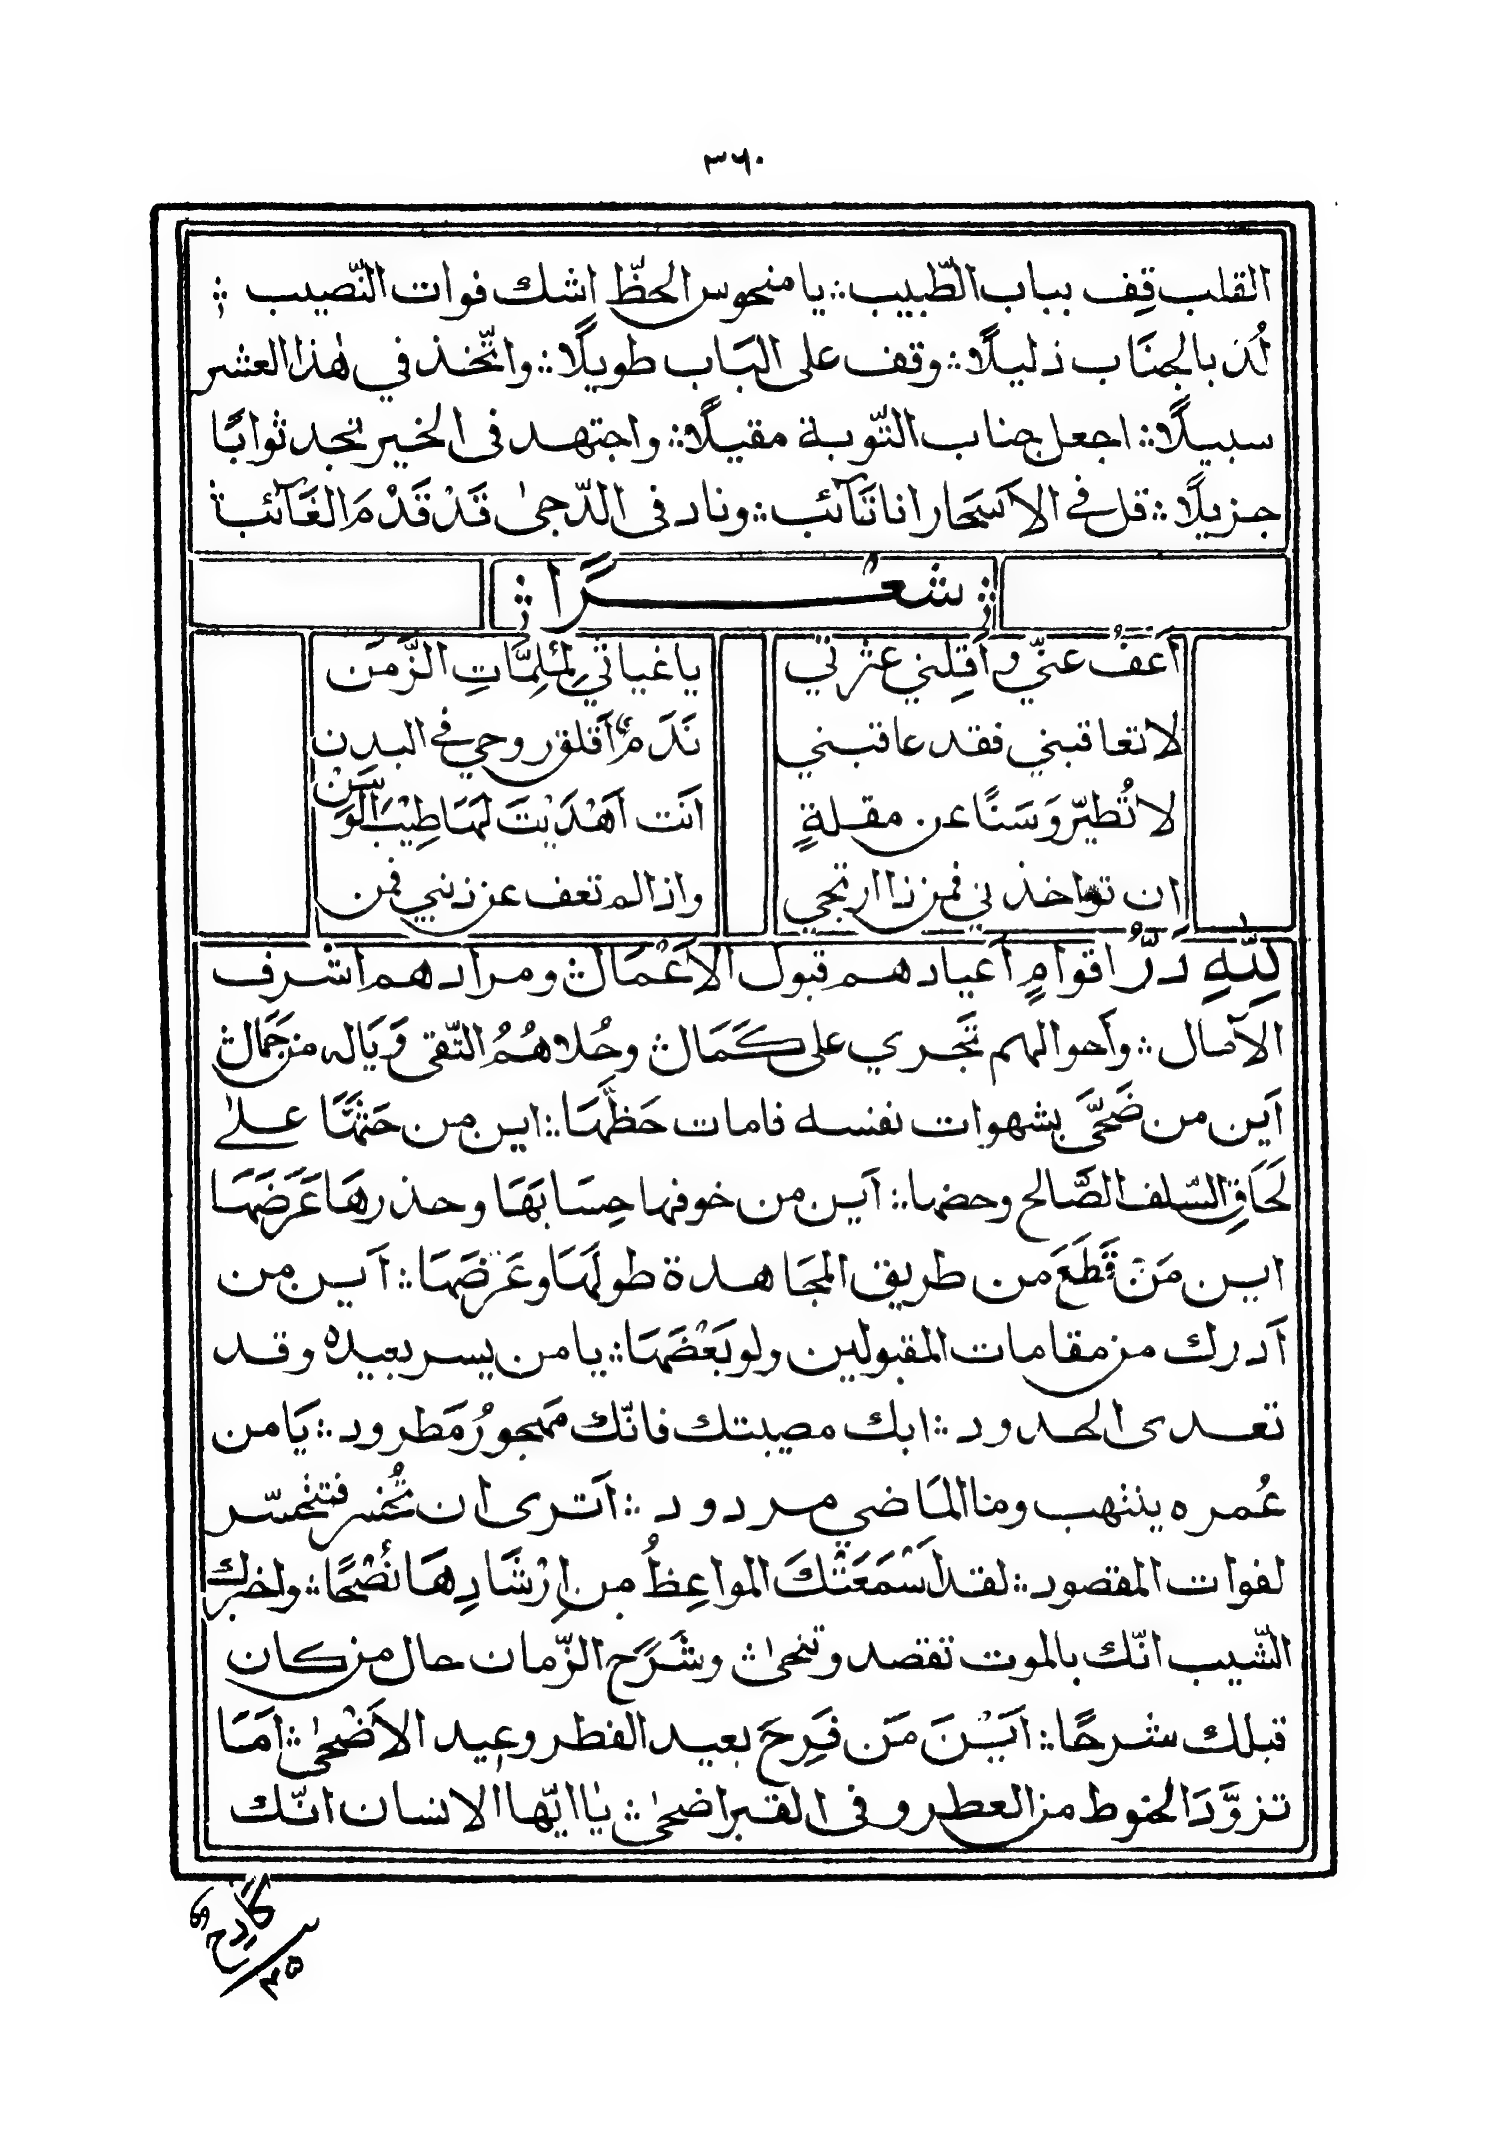 ٣٦٠
القلب قِف بباب الطّبيب ؞ يا منحوس الحظّ اشك فوات النّصيب ؞
لُذ بالجنَاب ذليلًا ؞ وقف على البَاب طويلًا ؞ واتّخذ في هٰذا العشر
سبيلًا ؞ اجعل جناب التّوبة مقيلًا ؞ واجتهد فى الخير تجد ثوابًا
جزيلًا ؞ قل في الاَسحَار انا تَآئب ؞ وناد فى الدّجىٰ قَدْ قَدْمَ الغَآئب ؞
؞ شعْــرًا ؞
اَعفُ عنّي واَقِلني عثرتي
ياغياثي لِمُلِمَّاتِ الزَّمَن
لا تعاقبني فقد عاقبني
نَدَمٌ اَقلق روحي في البدن
لا تُطيّر وَسَنًا عن مقلةٍ
اَنت اَهْدَيْتَ لهَا طِيْبَ الوَسَن
ان تواخذني فمن ذا ارتجي
واذا لم تعف عن ذنبي فمن
لِلّٰهِ دَرُّ اقوامٍ اَعياد هم قبول الاَعْمَال ؞ ومراد هم اَشرف
الاَمال ؞ واَحوالهم تَجري على كَمَال ؞ وحُلاهُمُ التّقى وَيَاله من جَمَال ؞
اَين من ضَحَّى بشهوات نفسه فامات حَظّهَا ؞ اين من حَثهَّا علىٰ
لَحَاقِ السّلف الصَّالح وحضها ؞ اَين من خوفها حِسَابهَا وحذرهَا عَرَضَهَا
اين مَنْ قَطَعَ من طريق المجَاهدة طولهَا وعَرضَهَا ؞ اَين من
اَدرك من مقامات المقبولين ولو بَعْضَهَا ؞ يا من يسر بعيده وقد
تعدى الحدود ؞ ابك مصيبتك فانّك مهجورُ مَطرود ؞ يَا من
عُمره ينتهب وما المَاضي مردود ؞ اَترى ان تُخسر فتتحسّر
لفوات المقصود ؞ لقد اَسْمَعَتْكَ المواعِظُ من اِرْشَادِهَا نُصْحًا ؞ واخبرك
الشّيب انّك بالموت تقصد وتنحىٰ ؞ وشَرَح الزّمان حال من كان
قبلك شرحًا ؞ اَيْنَ مَن فَرِحَ بعيد الفطر وعِيد الاَضْحىٰ ؞ اَمَا
تزوَّدَ الحنوط من العطر وفى القبر اضحىٰ ؞ يٰا ايّها الانسان انّك